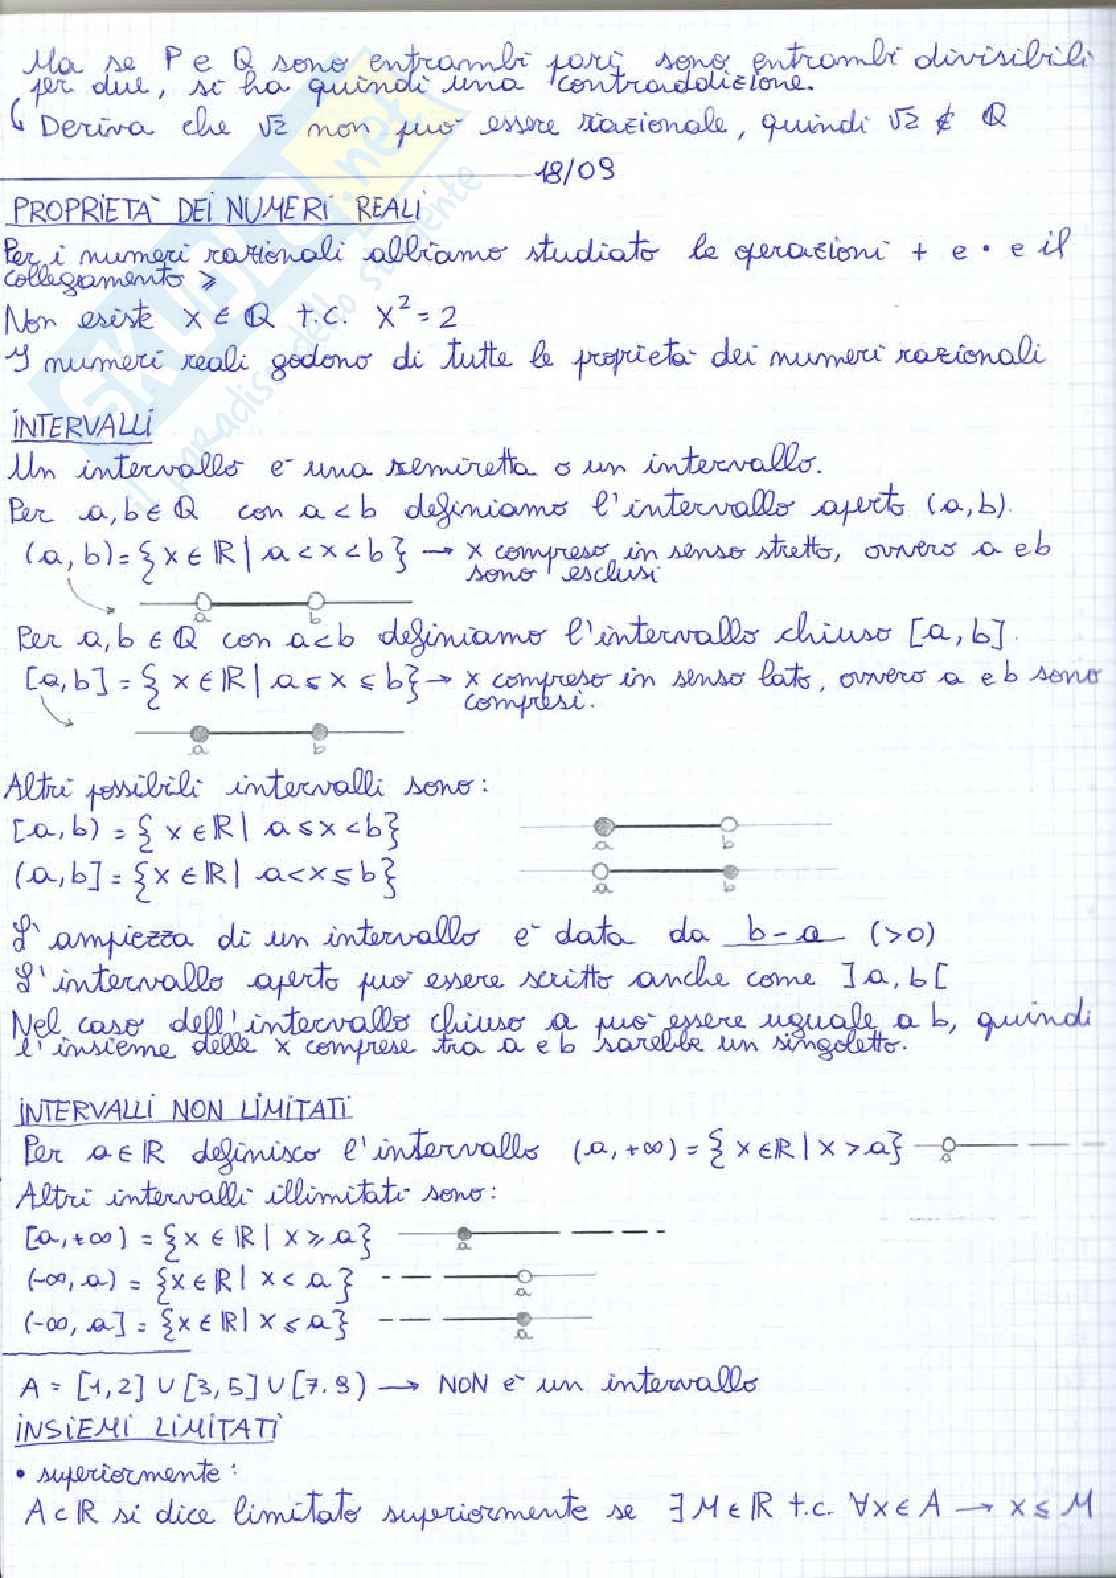 Ma se P e Q sono entrambi pari sono entrambi divisibili
per due, si ha quindi una contraddizione.
↳ Deriva che √2 non può essere razionale, quindi √2 ∉ ℚ
18/09
PROPRIETÀ DEI NUMERI REALI
Per i numeri razionali abbiamo studiato le operazioni + e • e il
collegamento ≥
Non esiste x ∈ ℚ t.c. x² = 2
I numeri reali godono di tutte le proprietà dei numeri razionali
INTERVALLI
Un intervallo è una semiretta o un intervallo.
Per a, b ∈ ℚ con a < b definiamo l'intervallo aperto (a, b).
(a, b) = {x ∈ ℝ | a < x < b} → x compreso in senso stretto, ovvero a e b
sono esclusi
a b
Per a, b ∈ ℚ con a < b definiamo l'intervallo chiuso [a, b].
[a, b] = {x ∈ ℝ | a ≤ x ≤ b} → x compreso in senso lato, ovvero a e b sono
compresi.
a b
Altri possibili intervalli sono:
[a, b) = {x ∈ ℝ | a ≤ x < b} a b
(a, b] = {x ∈ ℝ | a < x ≤ b} a b
L'ampiezza di un intervallo è data da b - a (>0)
L'intervallo aperto può essere scritto anche come ]a, b[
Nel caso dell'intervallo chiuso a può essere uguale a b, quindi
l'insieme delle x comprese tra a e b sarebbe un singoletto.
INTERVALLI NON LIMITATI
Per a ∈ ℝ definisco l'intervallo (a, +∞) = {x ∈ ℝ | x > a} a
Altri intervalli illimitati sono:
[a, +∞) = {x ∈ ℝ | x ≥ a} a
(-∞, a) = {x ∈ ℝ | x < a} a
(-∞, a] = {x ∈ ℝ | x ≤ a} a
A = [1, 2] ∪ [3, 5] ∪ [7. 9) → NON è un intervallo
INSIEMI LIMITATI
• superiormente:
A ⊂ ℝ si dice limitato superiormente se ∃ M ∈ ℝ t.c. ∀x ∈ A → x ≤ M
SKUOLA.net
il paradiso dello studente